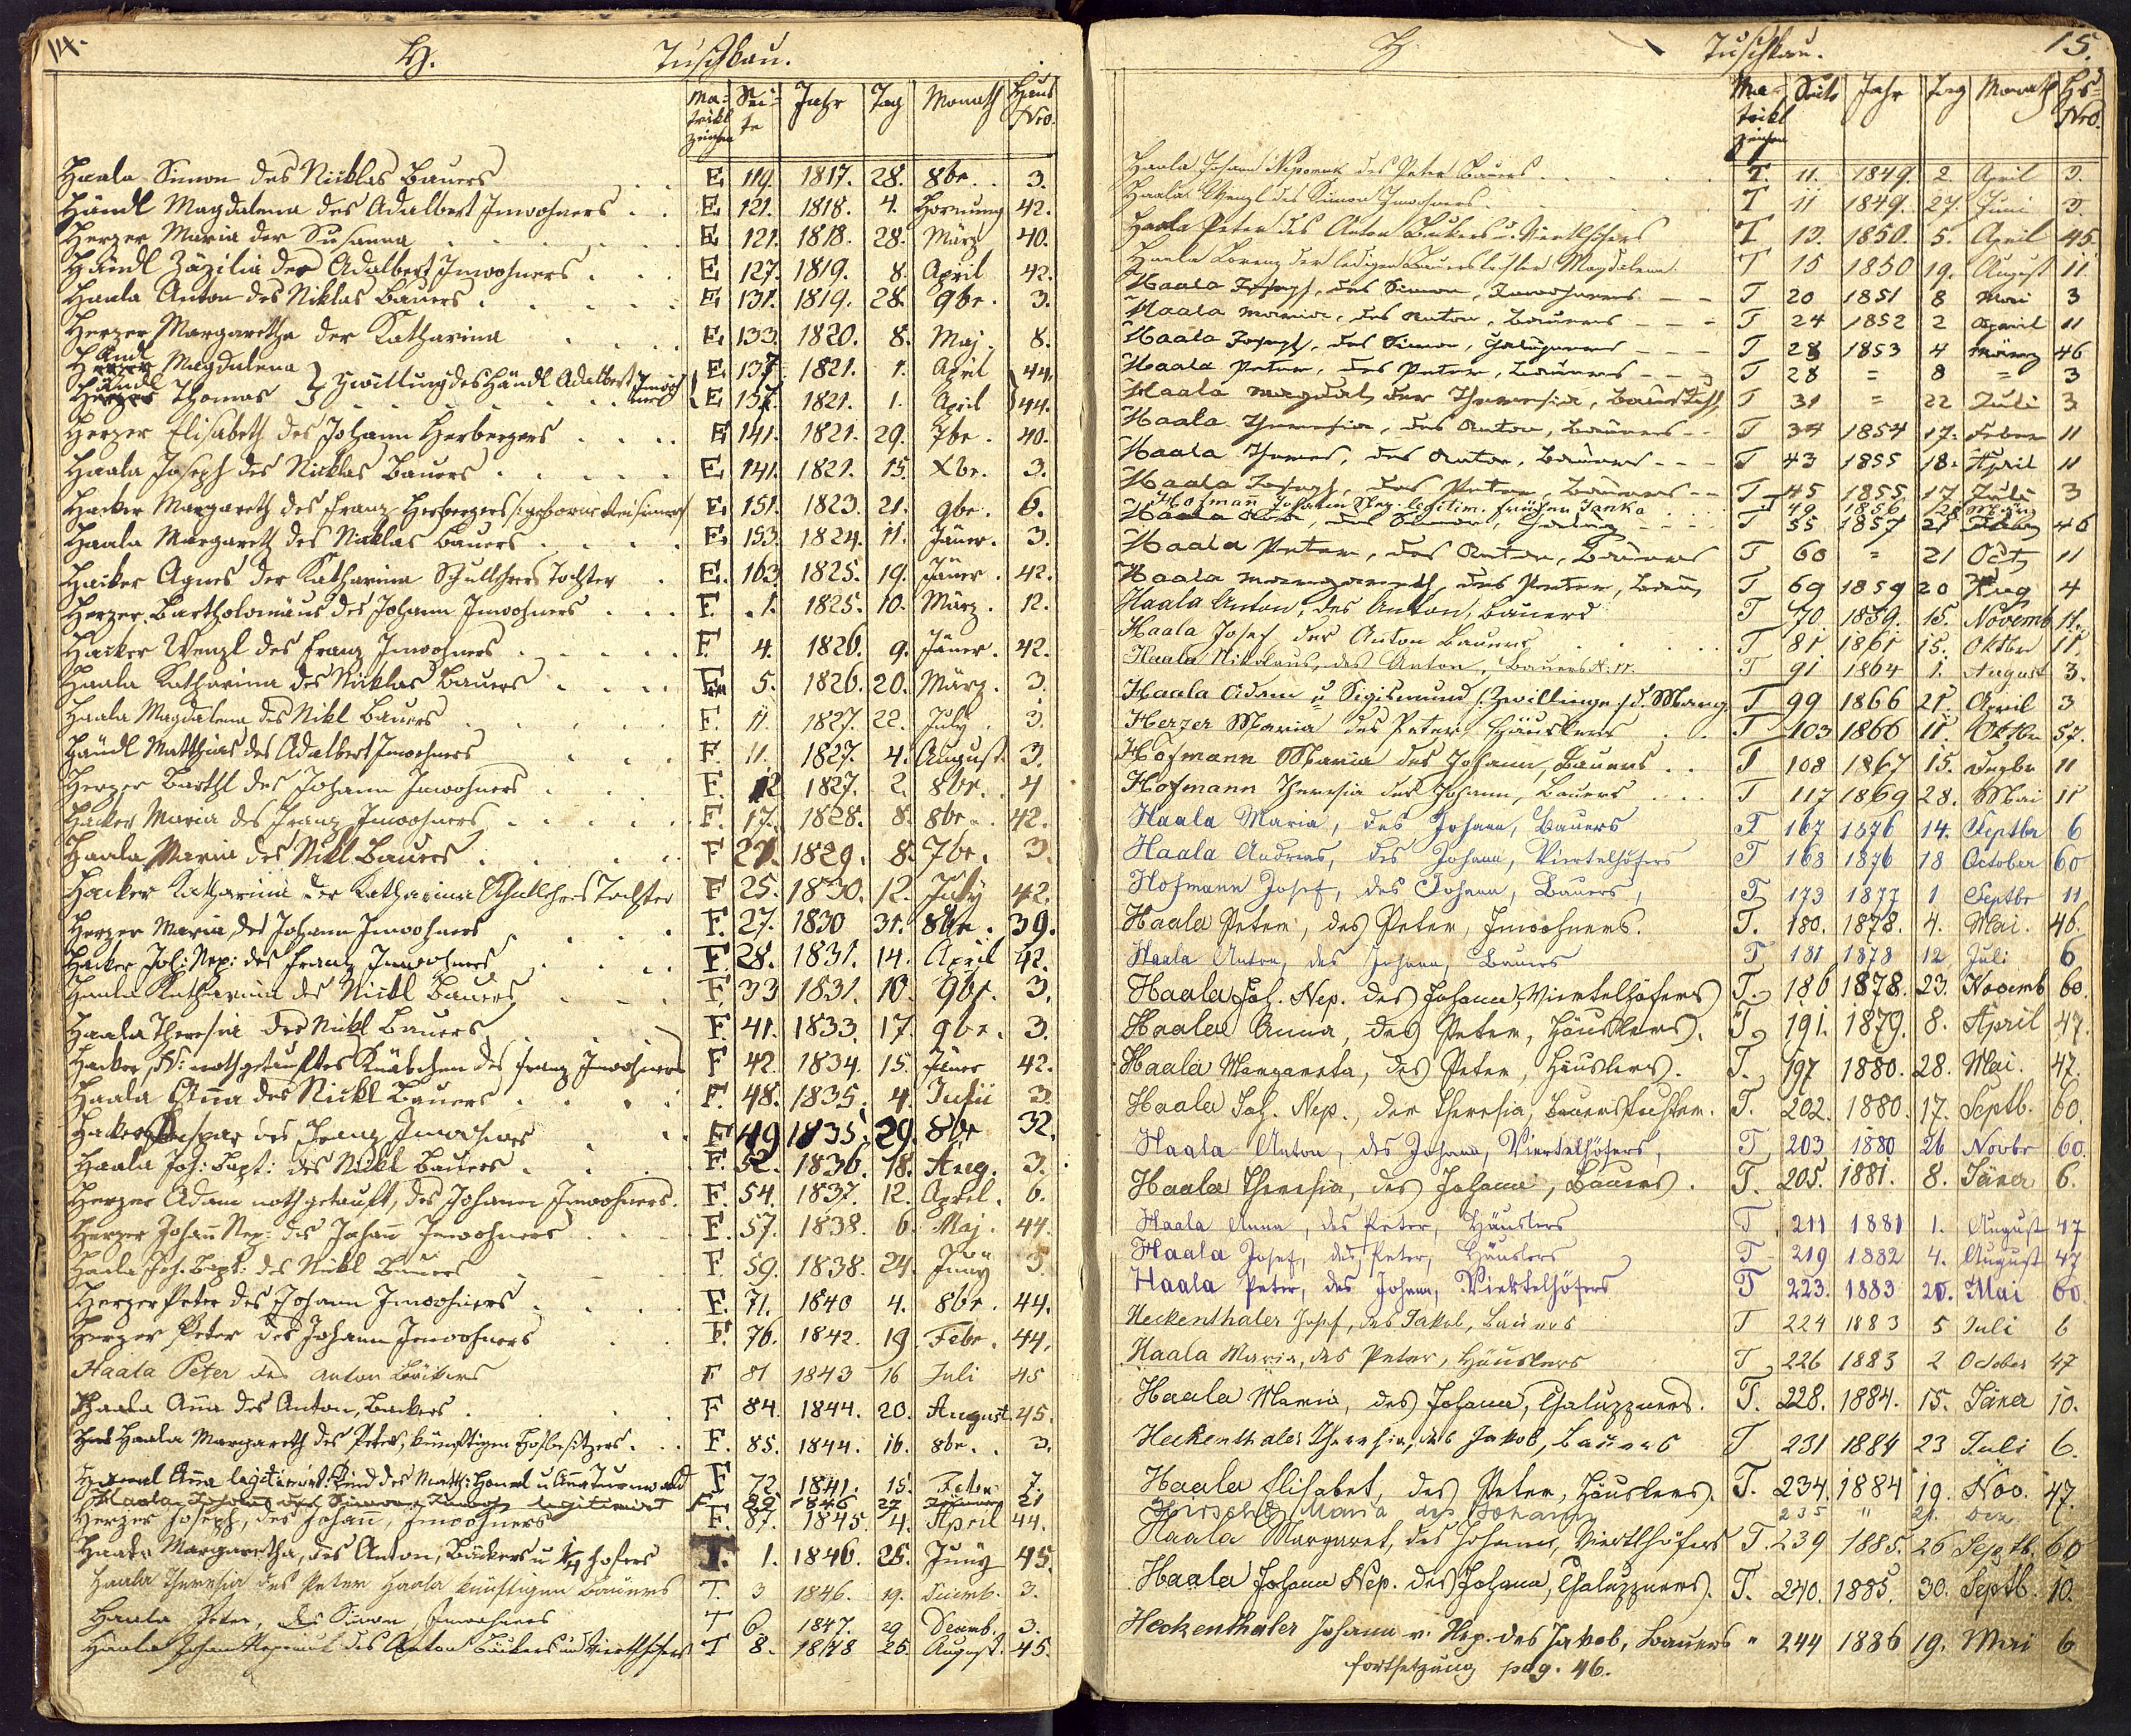 14.
H. Tuschkau.
Ma: trikl zeichen Sei: te Jahr Tag Monath Haus Nro.
Haala Simon des Nicklas Bauers E 119. 1817. 28. 8br. 3.
Händl Magdalena des Adalbert Inwohners E 121. 1818. 4. Hornung 42.
Herzer Maria der Susanna E 121. 1818. 28. März 40.
Händl Zäzilia des Adalbert Inwohners E 127. 1819. 8. April 42.
Haala Anton des Niklas Bauers E 131. 1819. 28. 9br. 3.
Herzer Margaretha der Katharina E 133. 1820. 8. Maj. 8.
Händl Magdalena E 137. 1821. 1. April 44.
Händl Thomas } Zwillung des Händl Adalbert E 137. 1821. 1. April 44.
Herzer Elisabeth des Johann Herbergers E 141. 1821. 29. 7br. 40.
Haala Joseph des Nicklas Bauers E 141. 1821. 15. Xbr. 3.
Hacker Margareth des Franz Herbergers E 151. 1823. 21. 9br. 6.
Haala Margareth des Nicklas Bauers E 153. 1824. 11. Jäner. 3.
Hacker Agnes der Katharina Schullehrers Tochter E. 163 1825. 19. Jäner. 42.
Herzer Bartholomäus des Johann Inwohners F. 1. 1825. 10. März. 12.
Hacker Wenzl des Franz Inwohners F. 4. 1826. 9. Jäner. 42.
Haala Katharina des Nicklas Bauers F. 5. 1826. 20. März. 3.
Haala Magdalena des Nikl Bauers F. 11. 1827. 22. July. 3.
Händl Matthias des Adalbert Inwohners F. 11. 1827. 4. August. 3.
Herzer Barthl des Johann Inwohners F. 12 1827. 2. 8br. 4
Hacker Maria des Franz Inwohners F. 17. 1828. 8. 8br. 42.
Haala Maria des Nikl Bauers F 21. 1829. 8. 7br. 3.
Hacker Katharina der Katharina Schullehrers Tochter F 25. 1830. 12. July 42.
Herzer Maria des Johann Inwohners F. 27. 1830 31. 8br. 39.
Hacker Joh: Nep: des Franz Inwohners F. 28. 1831. 14. April 42.
Haala Katharina des Nickl Bauers F. 33 1831. 10. 9br. 3.
Haala Theresia des Nickl Bauers F. 41. 1833. 17. 9br. 3.
Hacker, N: nothgetauftes Knäbchen des Franz Inwohners F 42. 1834. 15. Jäner 42.
Haala Anna des Nickl Bauers F. 48. 1835. 4. Julii 3.
Hacker Kaspar des Franz Inwohners F 49 1835. 29. 8br 32.
Haala Joh: Bapt: des Nickl Bauers F. 52. 1836. 18. Aug. 3.
Herzer Adam nothgetauft, des Johann Inwohners. F. 54. 1837. 12. April. 6.
Herzer Johann Nep: des Johann Inwohners F. 57. 1838. 6. Maj. 44.
Haala Joh. Bapt: des Nickl Bauers F. 59. 1838. 24. Juny 3.
Herzer Peter des Johann Inwohners F. 71. 1840 4. 8br. 44.
Herzer Peter des Johann Inwohners F. 76. 1842. 19. Febr. 44.
Haala Peter des Anton Bäckers F 81 1843 16 Juli 45
Haala Anna des Anton, Backers F 84. 1844. 20. August 45.
Haala Margareth des Peter, künftigen Hofbesitzers. F. 85. 1844. 16. 8br. 3.
Anna legitimirt: Kind des Math: u Anna F 72. 1841. 15. Febr. 7.
Haala Johann des Simon legitimirt F 89 1846 27 Jänner 21
Herzer Joseph, des Johann, Inwohners F. 87. 1845. 4. April 44.
Haala Margaretha, des Anton, Bäckers u 1/4 hofers T. 1. 1846. 26. Juny 45.
Haala Theresia des Peter Haala künftigen Bauers T. 3 1846. 19. 3.
Haala Peter, des Simon Inwohners T 6. 1847. 29 Decemb. 3.
Haala Johan Nepomuk des Anton Bäckers und Viertlhofers T 8. 1848 26. August. 45.
H. Tuschkau. 15.
Ma trikl zeichen Seite Jahr Tag Monath Hs= Nro.
Haala Johann Nepomuk des Peter Bauers T. 11. 1849. 2 April 3.
Haala Wenzl des Simon Inwohners T 11 1849. 27. Juni 3.
Haala Peter des Anton Bäckers u. Viertlhofers T 13. 1850. 5. April 45
Haala Lorenz der ledigen Bauerstochter Magdalena T 15 1850 19. August 11
Haala Joseph, des Simon, Inwohners T 20 1851 8 Mai 3
Haala Maria, des Anton, Bauers T 24 1852 2 April 11
Haala Joseph, des Simon, Chaluppners T 28 1853 4 März 46
Haala Peter, des Peter, Bauers T 28 = 8 = 3
Haala Magdal, der Theresia, Baurstocht T 31 = 22 Juli 3
Haala Theresia, des Anton, Bauers T 34 1854 17. Feber 11
Haala Theres, des Anton, Bauers T 43 1855 18. April 11
Haala Joseph, des Peter, Bauers T 45 1855 17 Juli 3
Hofmann Johann Nep. legitim. früher Janka T 49 1856 28
Haala des Simon, T 55 1857 21 46
Haala Peter, des Anton, Bauers T 60 = 21 Oct 11
Haala Margareth, des Peter, Bau T 69 1859 20 Aug 4
Haala Anton, des Anton, Bauers T 70. 1859. 15. Novemb 11.
Haala Josef des Anton Bauers T 81. 1861 15. Oktbr 11.
Haala Nikolaus, des Anton, Bauers N. 11. T 91 1864 1. August 3.
Haala Adam u Sigismund (: Zwillinge :) d. Marg. T 99 1866 21. April 3
Herzer Maria des Peter Häuslers T 103 1866 11. Oktbr 57.
Hofmann Maria des Johann, Bauers T 108 1867 15. Dezbr 11
Hofmann Theresia des Johann, Bauers T 117 1869 28. Mai 11
Haala Maria, des Johann, Bauers T 167 1876 14. Septbr 6
Haala Andreas, des Johann, Viertelhöfers T 168 1876 18 October 60
Hofmann Josef, des Johann, Bauers, T 173 1877 1 Septbr 11
Haala Peter, des Peter, Inwohners. T. 180. 1878. 4. Mai. 46.
Haala Anton, des Johann, Bauers T 181 1878 12 Juli 6
Haala Joh. Nep. des Johann, Viertelhöfers T. 186 1878. 23. Novemb 60.
Haala Anna, des Peter, Häuslers. T. 191. 1879. 8. April 47.
Haala Margareta, des Peter, Häuslers. T. 197 1880. 28. Mai. 47.
Haala Joh. Nep., der Theresia, Bauerstochter. T. 202. 1880. 17. Septb. 60.
Haala Anton, des Johann, Viertelhöfers, T 203 1880 26 Novbr 60.
Haala Theresia, des Johann, Bauers. T. 205. 1881. 8. Jäner 6.
Haala Anna, des Peter, Häuslers T 211 1881 1. August 47
Haala Josef, des Peter, Häuslers T 219 1882 4. August 47
Haala Peter, des Johann, Viertelhöfers T 223. 1883 20. Mai 60.
Heckenthaler Josef, des Jakob, Bauers T 224 1883 5 Juli 6
Haala Maria, des Peter, Häuslers T 226 1883 2 October 47
Haala Maria, des Johann, Chaluppners. T. 228. 1884. 15. Jäner 10.
Heckenthaler Theresia, des Jakob, Bauers T 231 1884 23 Juli 6.
Haala Elisabet, des Peter, Häuslers. T. 234. 1884 19. Nov. 47.
Hirschl Maria des Johann 235 " 21. Dez
Haala Margaret, des Johann, Viertlhöfers T. 239 1885. 26 Septb. 60
Haala Johann Nep. des Johann, Chaluppners. T. 240. 1885. 30. Septb. 10.
Heckenthaler Johann v. Nep. des Jakob, Bauers " 244 1886 19. Mai 6
fortsetzung pag. 46.